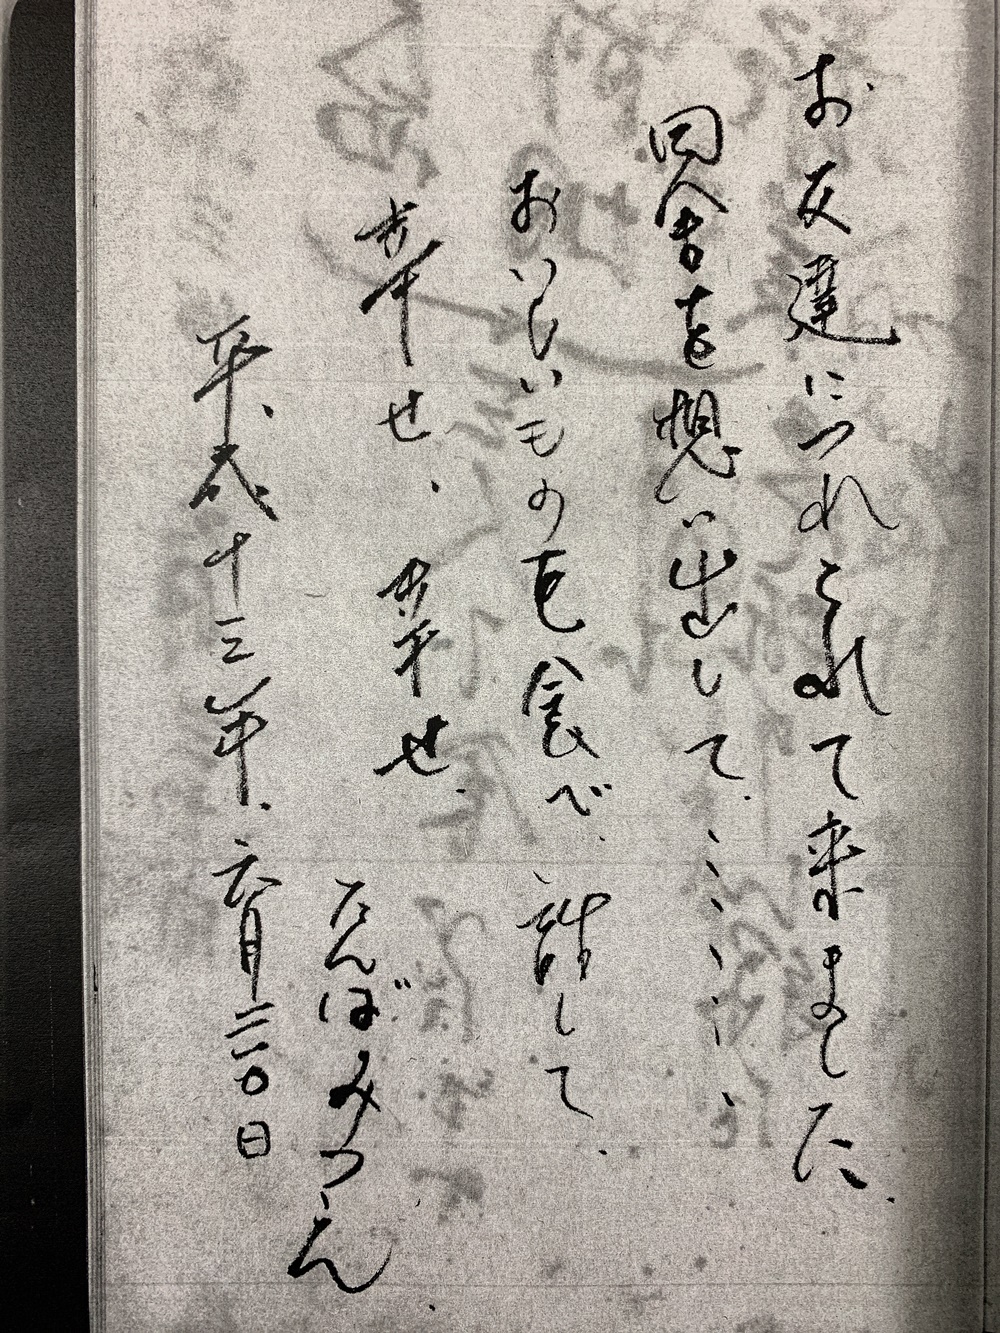 お友達につれられて来ました.
田舎を想い出して.、、、、、
おいしいものを食べ、話して.
幸せ、幸せ.
たんばみつえ.
平成十三年、六月二〇日